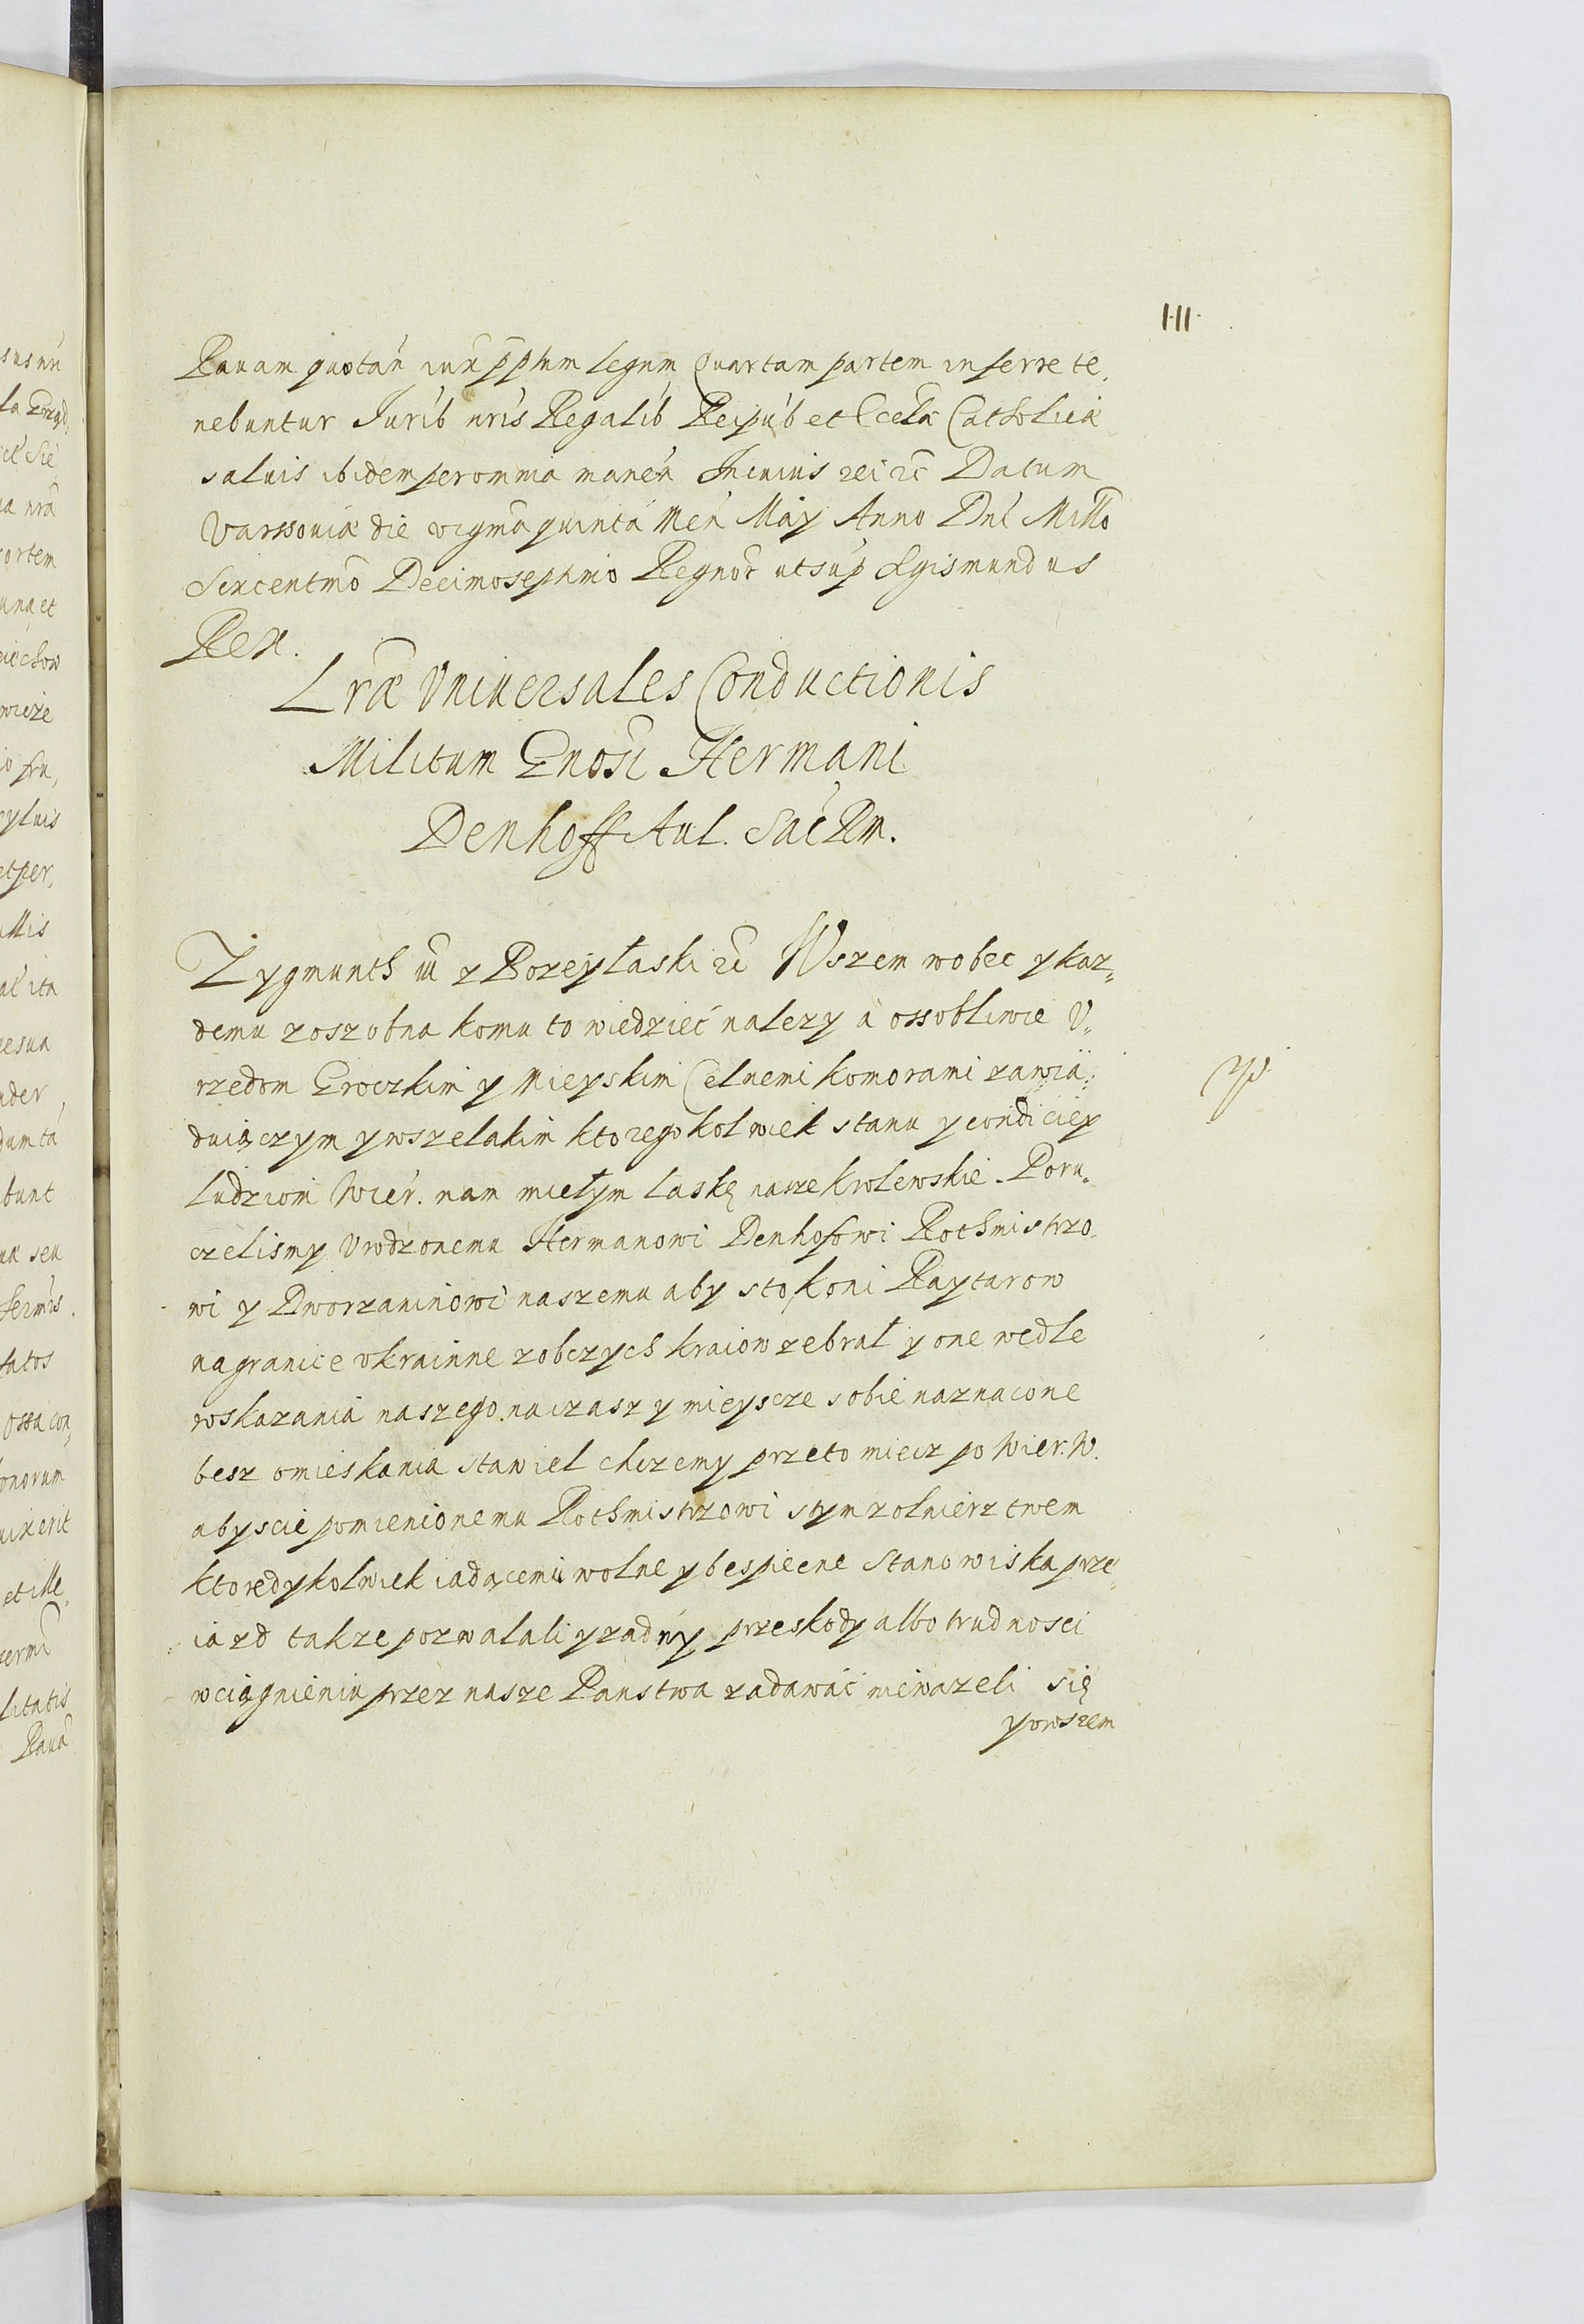 111.
Rauam quotań iux̃ p̃p̃tum legum Quartam partem inferre te,
nebuntur Jurib nris Regalib Reipub et Eccla Catholica
saluis ibidem per omnia maneń In cuius rei &c Datum
Varssouiæ die vigm̃a quinta Meń Maÿ Anno Dni Millo
Sexcentmo Decimoseptimo Regnor̃ ut sup Sgismundus
Rex.
Lr̃æ Vniuersales Conductionis
Militum Gnosi Hermani
Denhoff Aul. Sac RM.
Zygmunth iii z Bozey Łaski &c Wszem wobec y kaz,,
demu zoszobna komu to wiedzieć nalezy a ossobliwie V,,
rzedom Groczkim y Mieyskim Celnemi komorami zawia,,
duiączym y wszelakim ktoregokolwiek stanu y condiciey
ludziom Wier. nam miełym laskę nasze krolewskie. Poru,,
czelismy Vrodzonemu Hermanowi Denhofowi Rothmistrzo,
wi y Dworzaninowi naszemu aby sto koni Raytarow
na granice vkrainne z obczych kraiow zebrał y one wedle
roskazania naszego na czasz y mieyscze sobie naznacone
besz omieskania stawiel chczemy przeto miecz po Wier. W.
abyscie pomienionemu Rothmistrzowi s tym zolnierztwem
ktoredykolwiek iadącemu wolne y bespiecne Stanowiska prze,,
iazd takze pozwalali y zadny przeskody albo trudnosci
w ciągnieniu przez nasze Panstwa zadawać niewazeli się
y owszem